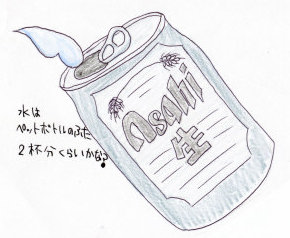 水は
ペットボトルのふた
2杯分くらいかな。
Asahi
生